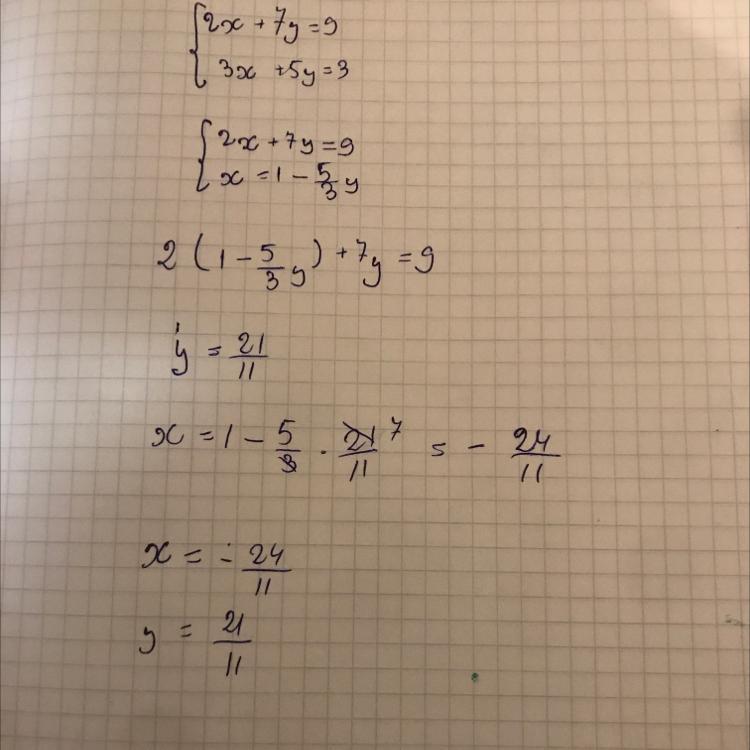 {2x + 7y = 9
3x + 5y = 3
{2x + 7y = 9
x = 1 - 5/3 y
2 (1 - 5/3 y) + 7y = 9
y = 21/11
x = 1 - 5/3 · 21/11 7 = - 24/11
x = - 24/11
y = 21/11